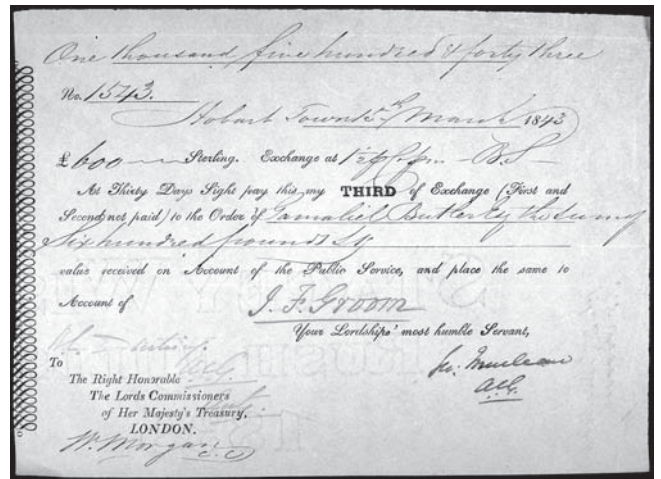 One thousand five hundred & forty three
No. 1543.
Hobart Town 5th March 1843
£600 Sterling. Exchange at 1½ p C pm
At Thirty Days Sight pay this my THIRD of Exchange (First and
Second not paid) to the Order of Gamaliel Butler Esq the sum of
Six hundred pounds St
value received on Account of the Public Service, and place the same to
Account of J. F. Groom
Your Lordships' most humble Servant,
To
The Right Honorable
The Lords Commissioners
of Her Majesty's Treasury,
LONDON.
W. Morgan